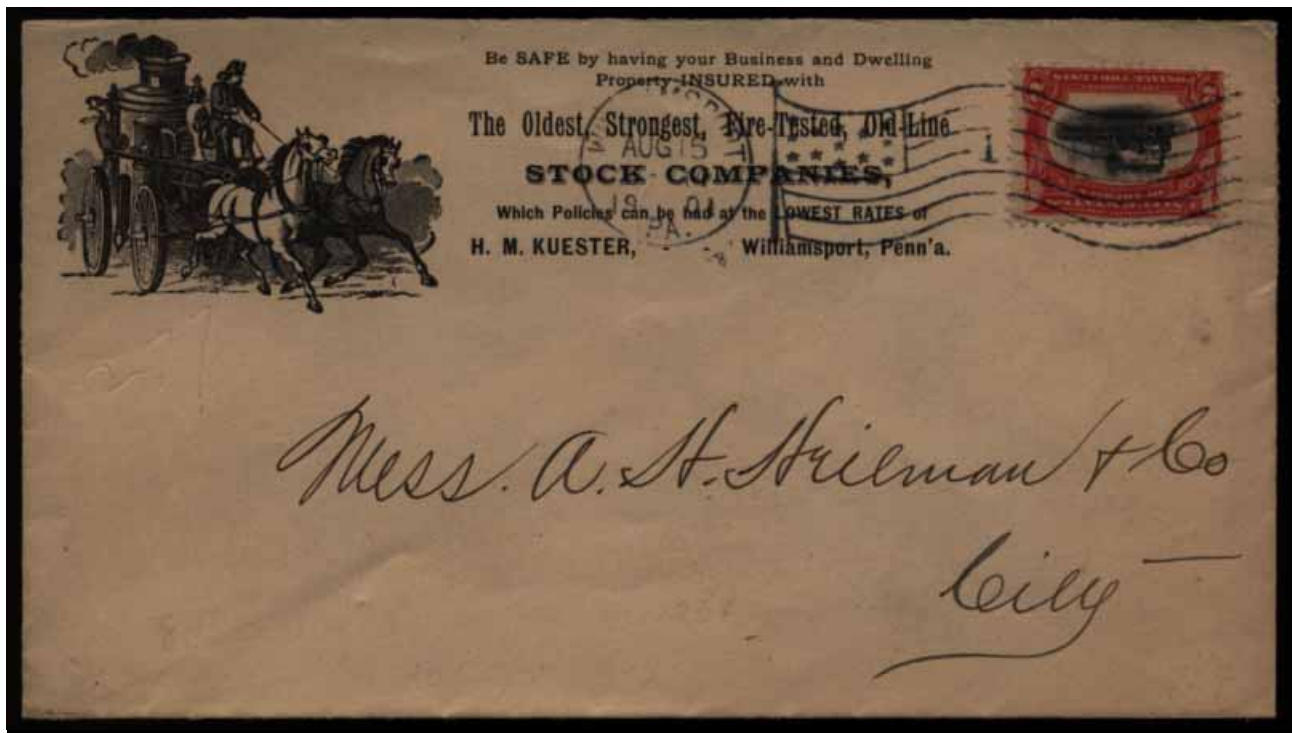 Be SAFE by having your Business and Dwelling
Property INSURED with
The Oldest, Strongest, Fire-Tested, Old-Line
STOCK COMPANIES,
Which Policies can be had at the LOWEST RATES of
H. M. KUESTER, - - Williamsport, Penn'a.
WILLIAMSPORT
AUG 15
1901
PA.
1
Mess. A. H. Heilman & Co
City